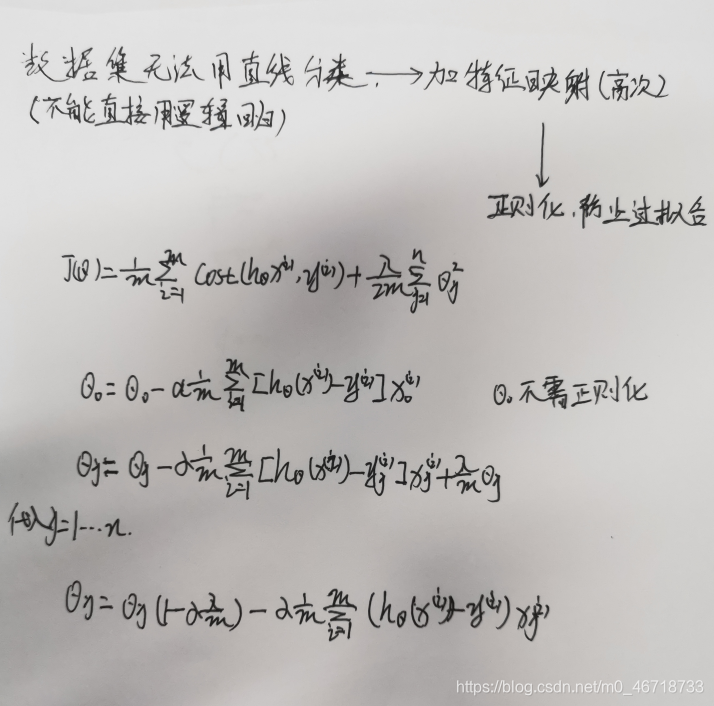 数据集无法用直线分类. → 加特征映射(高次)
(不能直接用逻辑回归)
↓
正则化,防止过拟合
J(θ)=1/m ∑_{i=1}^{m} Cost(h_θ x^{(i)}, y^{(i)}) + λ/2m ∑_{j=1}^{n} θ_j^2
θ_0 = θ_0 - α 1/m ∑_{i=1}^{m} [h_θ(x^{(i)}) - y^{(i)}] x_0^{(i)} θ_0 不需正则化
θ_j = θ_j - α 1/m ∑_{i=1}^{m} [h_θ(x^{(i)}) - y_j^{(i)}] x_j^{(i)} + λ/m θ_j
j=1…n.
θ_j = θ_j (1 - α λ/m) - α 1/m ∑_{i=1}^{m} (h_θ(x^{(i)}) - y^{(i)}) x_j^{(i)}
https://blog.csdn.net/m0_46718733